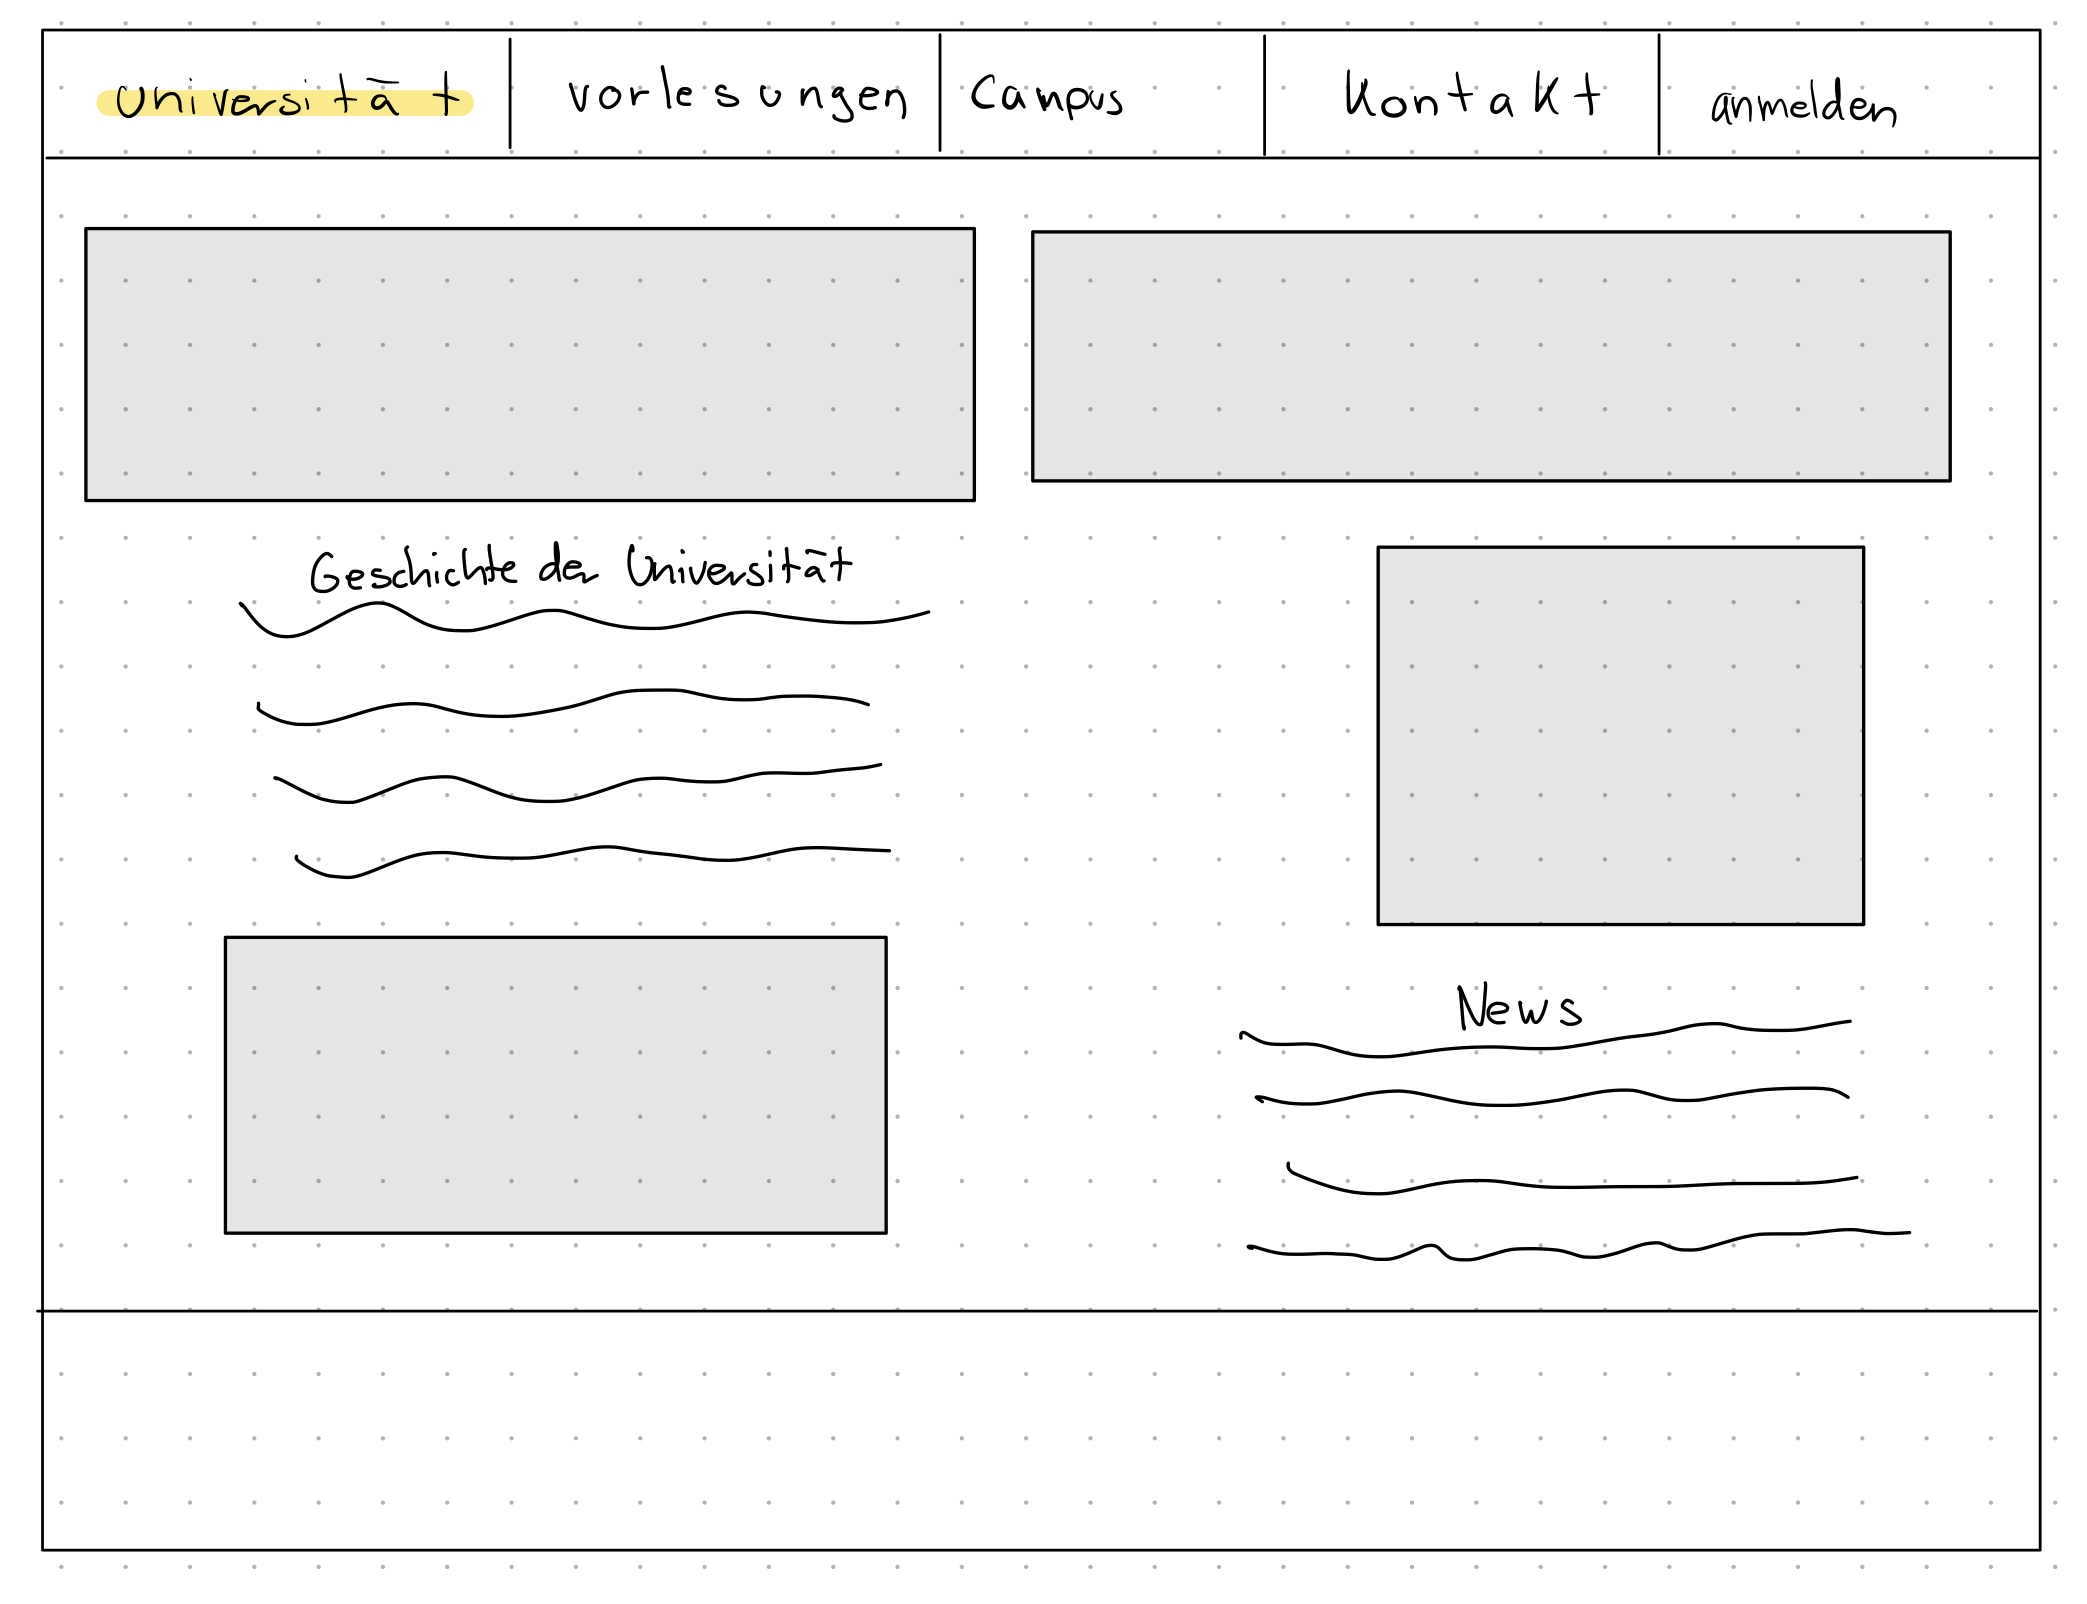 Universität Vorlesungen Campus Kontakt anmelden
Geschichte der Universität
News